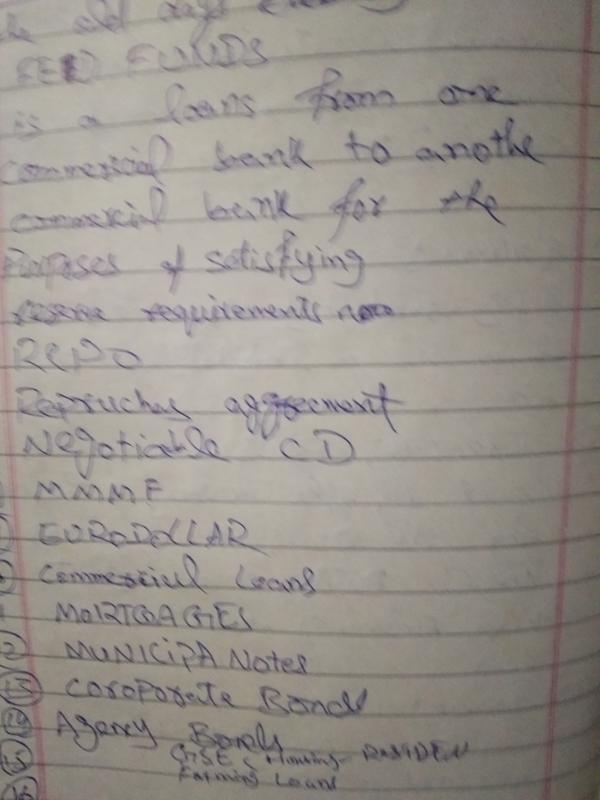 the old days
FED FUNDS
is a loans from one
commercial bank to anothe
commercial bank for the
Purpases of satisfying
reserve requirements
REPO
Repruchas aggreement
Negotiable CD
MMMF
EURODOLLAR
Commercial Loans
MORTGAGES
2 MUNICIPA Notes
13 Coroporate Bonds
14 Agency Bonds
15 GSE Housing
Farming Loans
16